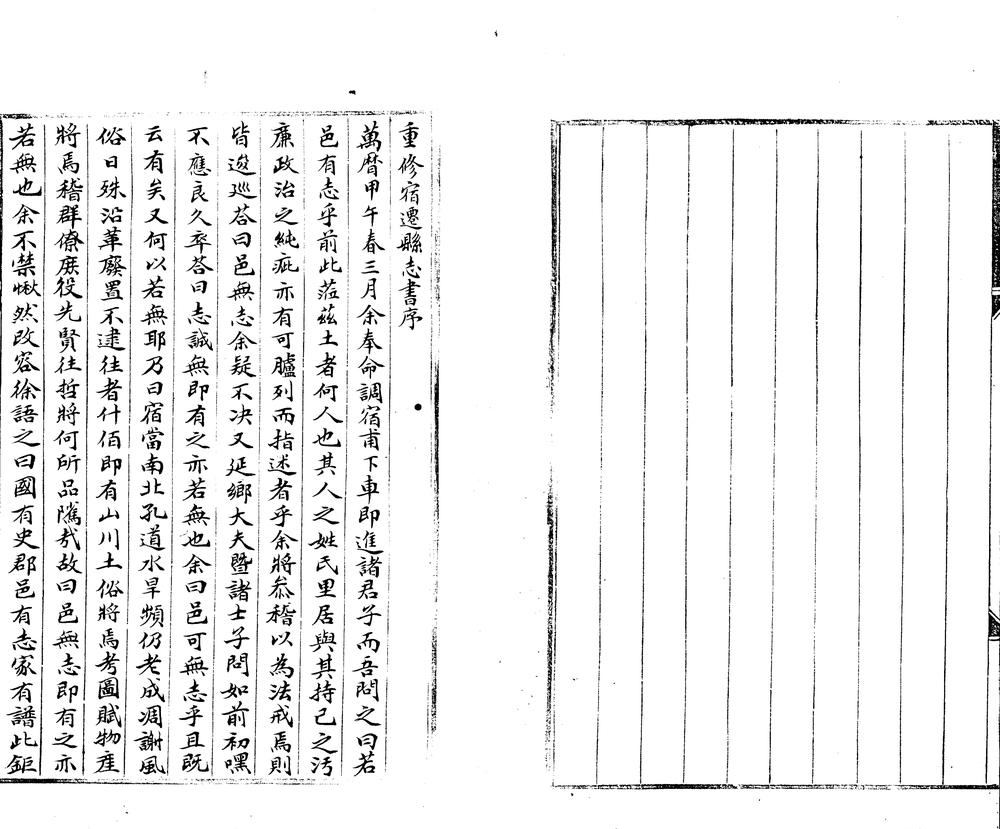 重修宿遷縣志書序
萬曆甲午春三月余奉命調宿甫下車即進諸君子而吾問之曰若
邑有志乎前此蒞茲土者何人也其人之姓氏里居與其持己之汚
廉政治之純疵亦有可臚列而指述者乎余將叅稽以為法戒焉則
皆逡廵荅曰邑無志余疑不决又延鄉大夫暨諸士子問如前初嘿
不應良久卒荅曰志誠無即有之亦若無也余曰邑可無志乎且既
云有矣又何以若無耶乃曰宿當南北孔道水旱頻仍老成凋謝風
俗日殊沿革廢置不逮往者什佰即有山川土俗將焉考圖賦物產
將焉稽群僚庶役先賢往哲將何所品隲㢤故曰邑無志即有之亦
若無也余不禁愀然改容徐語之曰國有史郡邑有志家有譜此鉅